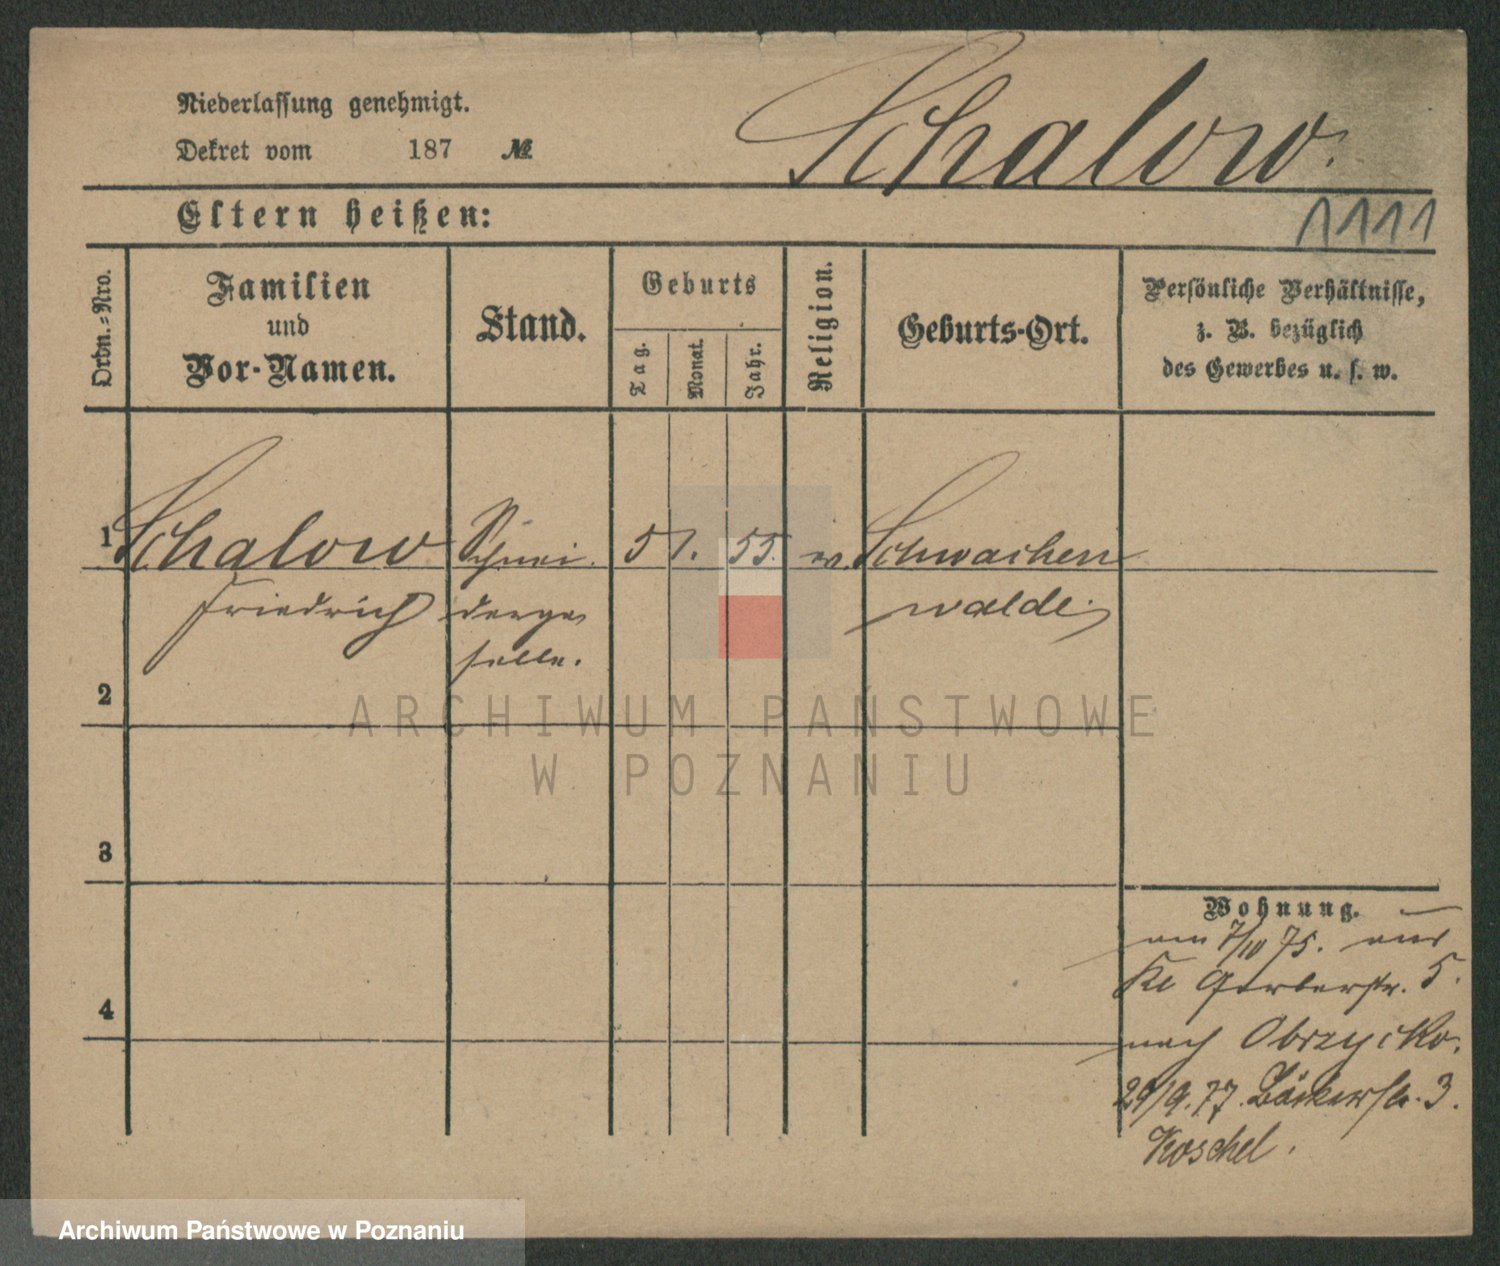 Niederlassung genehmigt.
Dekret vom 187 №
Schalow.
Eltern heißen:
1111
Ordn.-Nro.
Familien
und
Vor-Namen.
Stand.
Geburts
Tag.
Monat.
Jahr.
Religion.
Geburts-Ort.
Persönliche Verhältnisse,
z. B. bezüglich
des Gewerbes u. s. w.
1 Schalow Schnei 5 1. 55. Schwachen
Friedrich derge walde
selle.
2
ARCHIWUM PAŃSTWOWE
W POZNANIU
3
4
Wohnung.
am 7/10 75. aus
Kl Gerberstr. 5.
nach Obrzycko.
29/9. 77. Bäckerstr. 3.
Koschel.
Archiwum Państwowe w Poznaniu